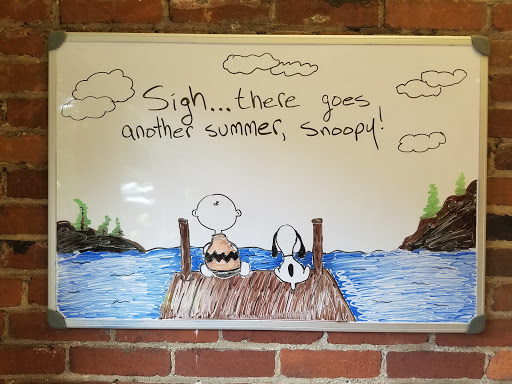 Sigh...there goes
another summer, Snoopy!